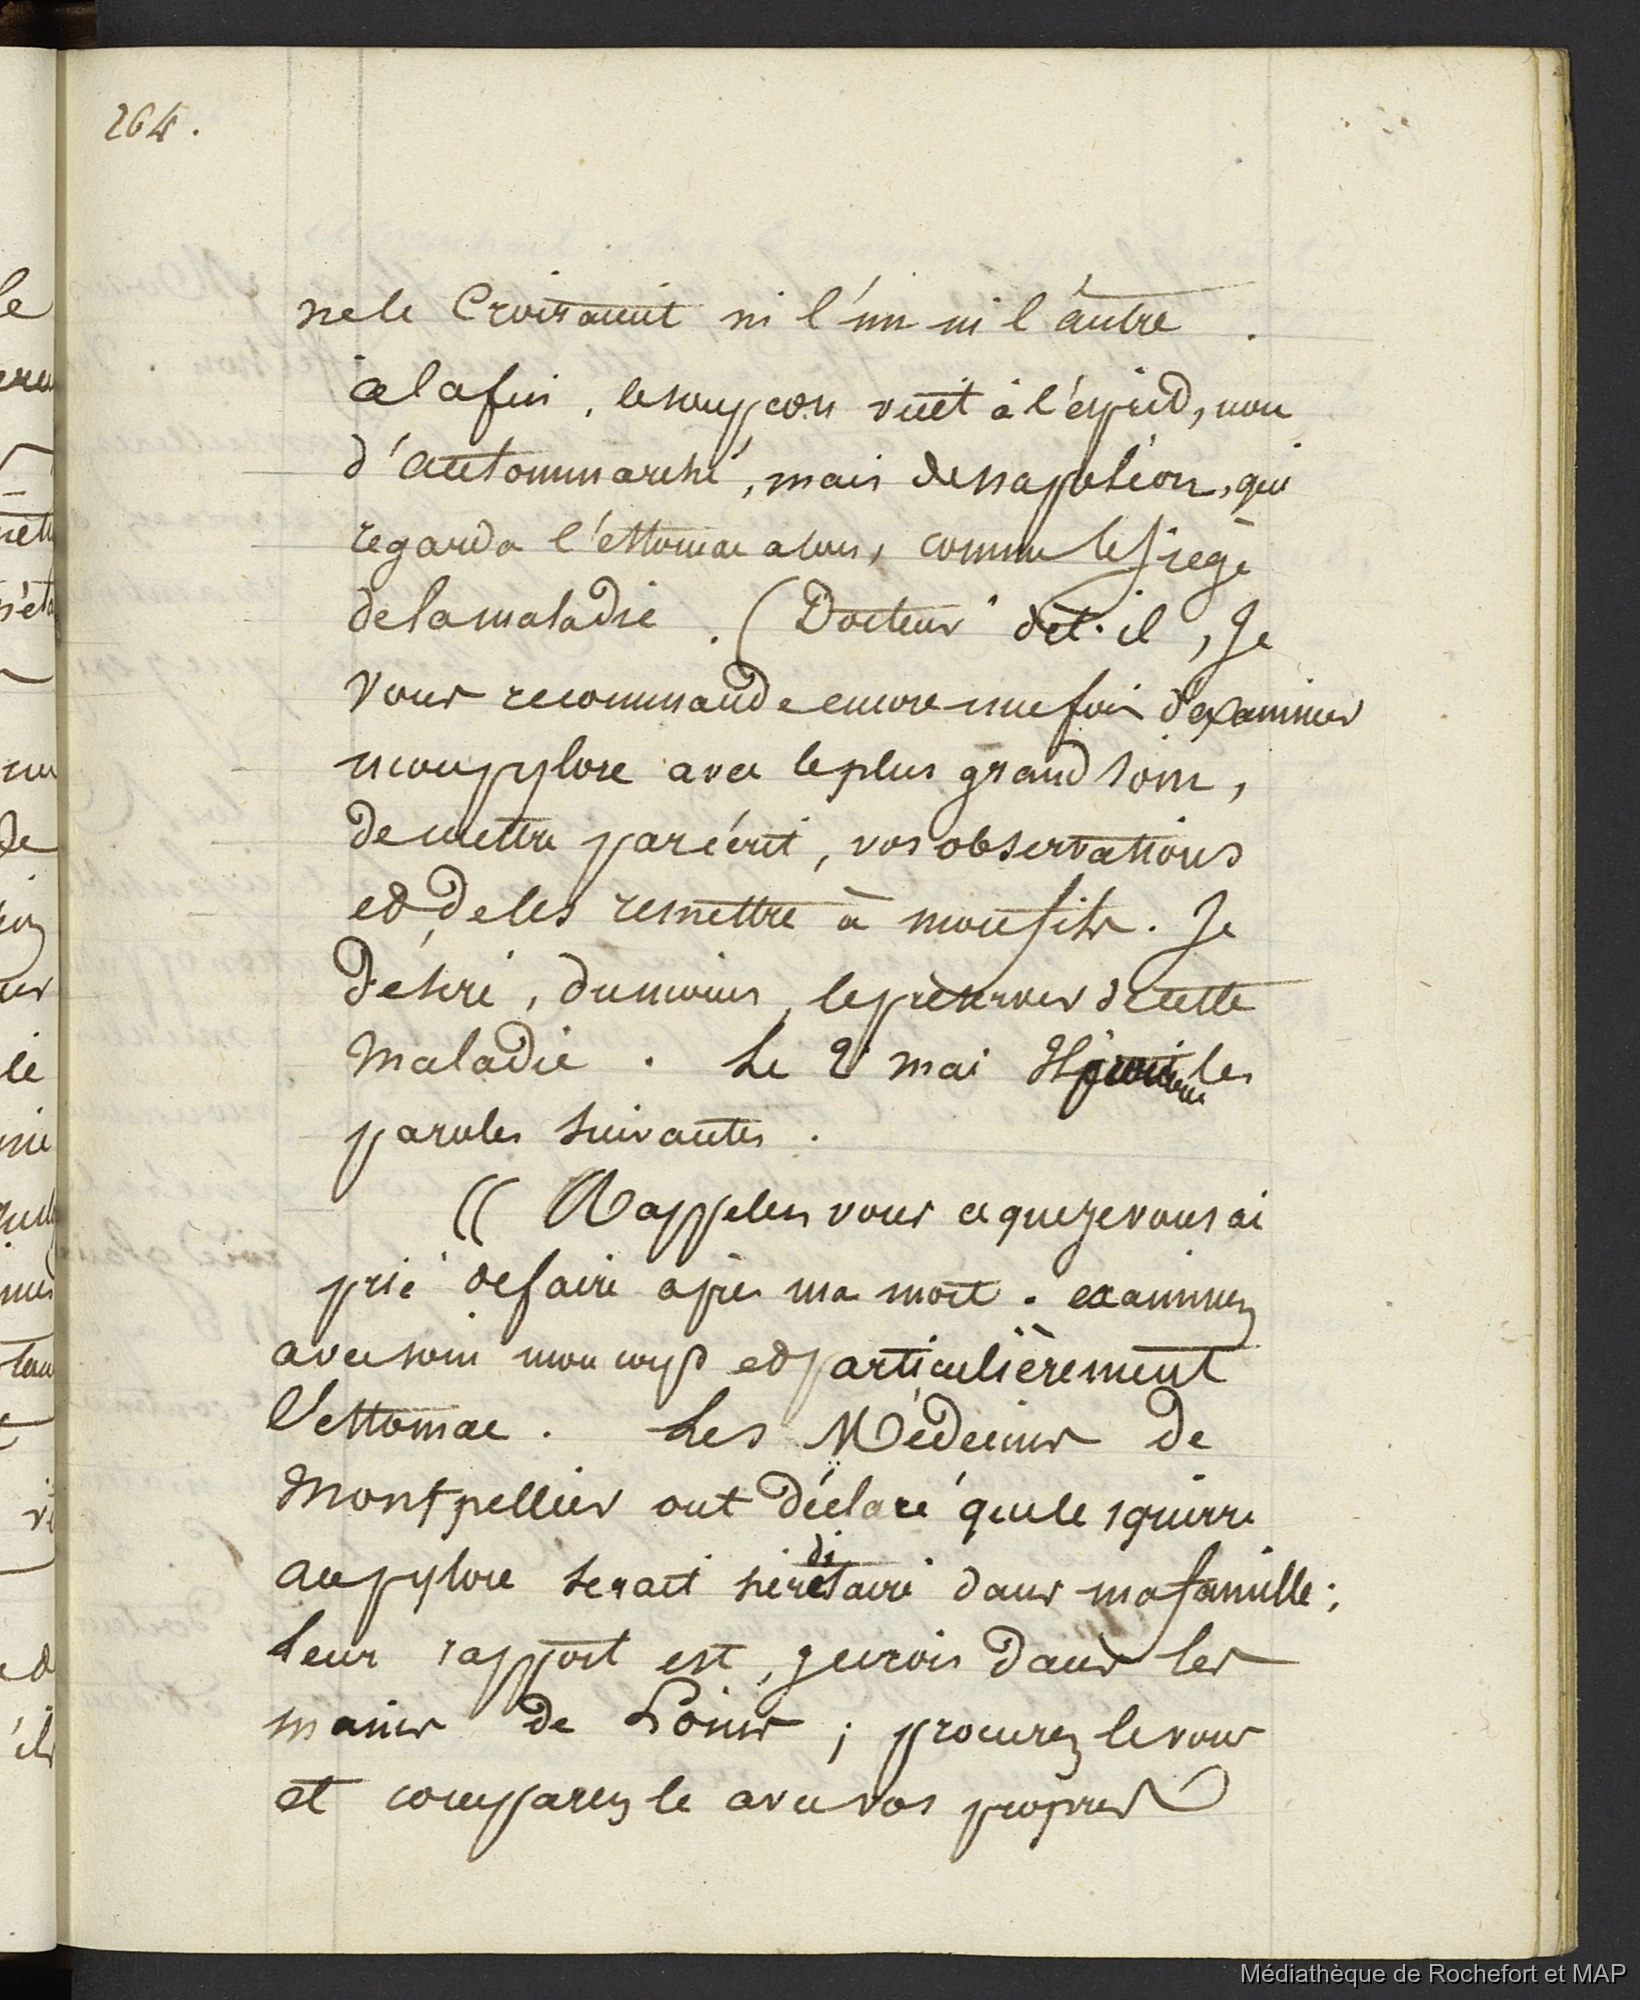 264.
ne le Croisaient ni l'un ni l'autre.
à la fin, le soupçon vint à l'esprit, non
d'Autommarchi, mais de napoléon, qui
regarda l'éttomac alors, comme le siège
de la maladie. (Docteur dit-il, Je
vous recommande encore une fois d'examiner
mon pylore avec le plus grand soin,
de mettre par écrit, vos observations
et de les remettre à mon fils. Je
désire, du moins, le préserver de cette
maladie. Le 2 mai Il les
paroles suivantes.
(( Rappelez vous ce que je vous ai
prié de faire après ma mort. examinez
avec soin mon corps et particulièrement
l'ettomac. Les Médecins de
Montpellier ont déclaré que le squirre
au pylore serait héréditaire dans ma famille;
leur rapport est, je crois dans les
mains de Loüis; procurez le vous
et comparez le avec vos propres
Médiathèque de Rochefort et MAP